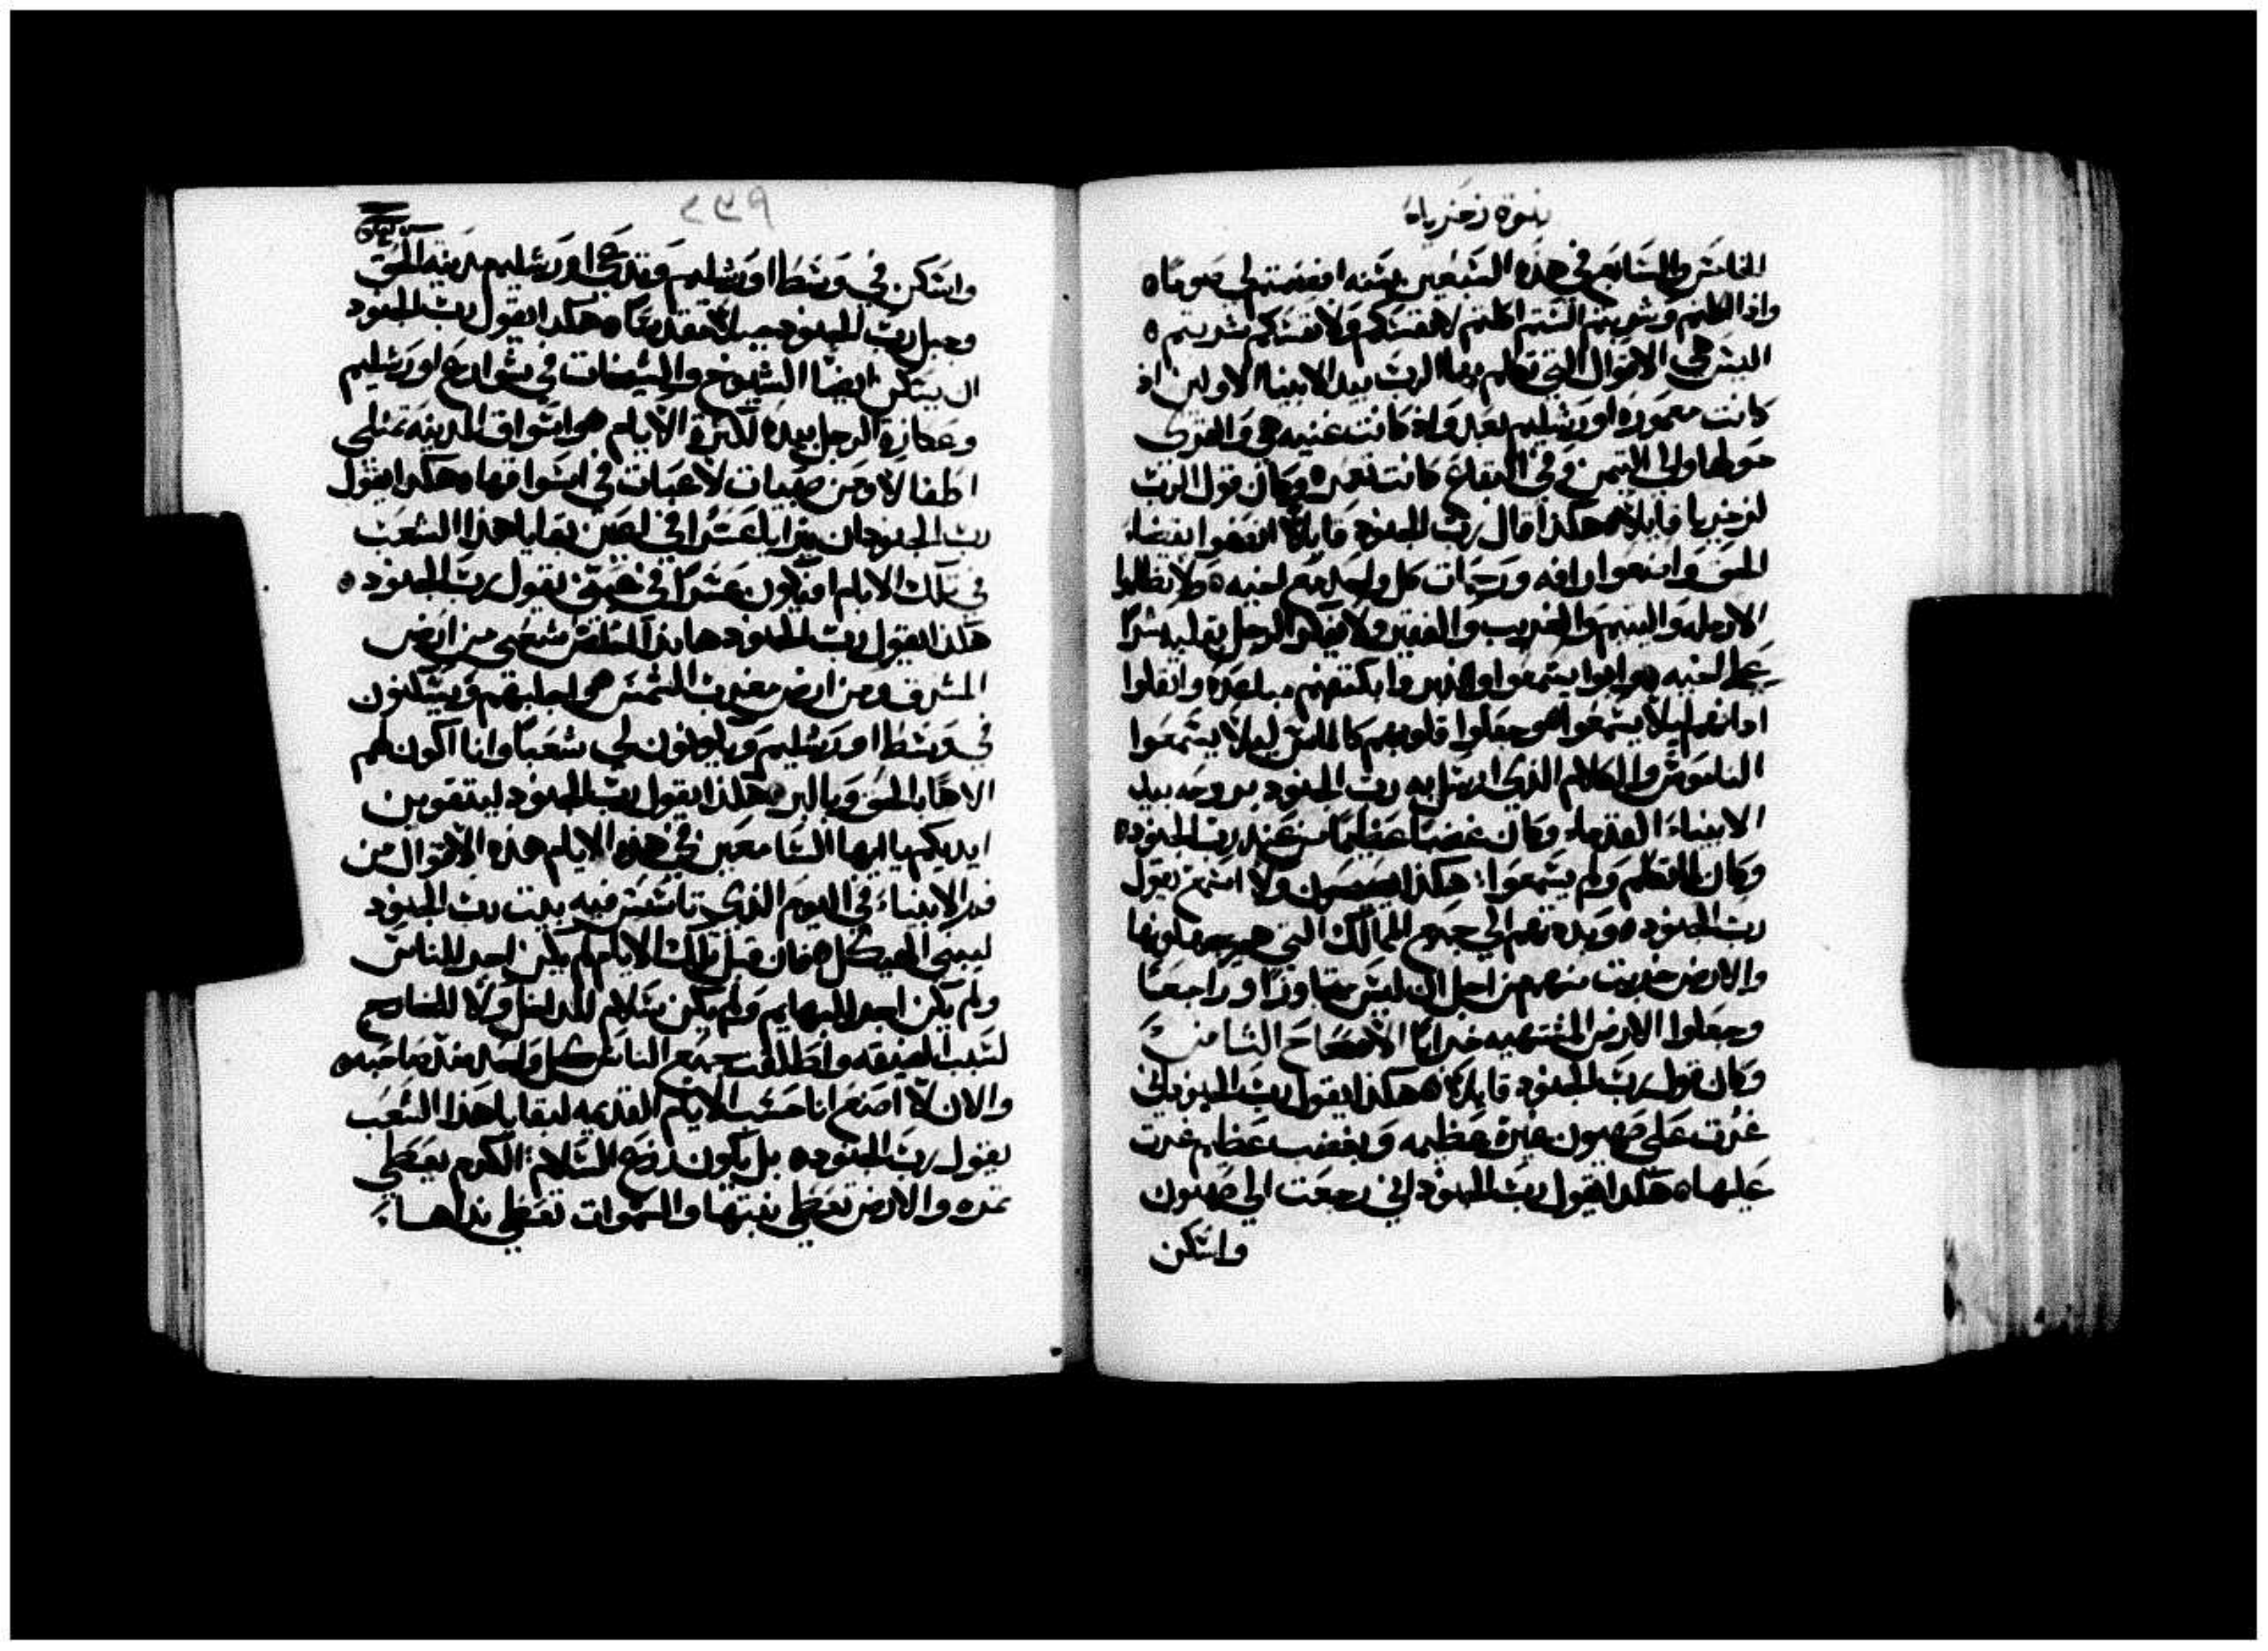 نبوة زخرياه
الخامس والسابع في هذه السبعين سنه افصمتم لي صومًا ه
واذا اكلتم وشربتم الستم اكلتم لانفسكم ولانفسكم شربتم ه
اليس هي الاقوال التي تكلم بها الرب بيد الانبيا الاولين اذ
كانت معموره اورشليم بعد واذ كانت غنيه هي والقرى
حولها والى التيمن وفي البقاع كانت تعمر ه وكان قول الرب
لزخريا قايلًا ه هكذا قال رب الجنود قايلًا اقضوا قضاء
الحق واصنعوا رافه ورحمات كل واحد مع اخيه ه ولا تظلموا
الارمله واليتيم والغريب والفقير ولا يفكر الرجل بقلبه شرًا
على اخيه ه وابوا يسمعوا واثقلوا
اذانهم ليلا يسمعوا ه وجعلوا قلوبهم كالماس ليلا يسمعوا
الناموس والكلام الذي ارسل به رب الجنود بروحه بيد
الانبياء القدماء وكان غضبًا عظيمًا من عند رب الجنود ه
وكان كما تكلم ولم يسمعوا: هكذا ولا اسمع يقول
رب الجنود ه وبددتهم الي جميع الممالك التي هم يجهلونها
والارض خربت منهم من اجل ان ليس مجاوزًا وراجعًا
وجعلوا الارض المشتهيه خرابًا الاصحاح الثامن
وكان قول رب الجنود قايلًا ه هكذا يقول رب الجنود اني
غرت على صهيون غيرة عظيمه وبغضب عظيم غرت
عليها ه هكذا يقول رب الجنود اني رجعت الي صهيون
واسكن
٢٣٩
واسكن في وسط اورشليم وتدعى اورشليم مدينه الحق
وجبل رب الجنود جبلًا مقدسًا ه هكذا يقول رب الجنود
ان يسكن ايضًا الشيوخ والشيخات في شوارع اورشليم
وعكازة الرجل بيده لكثرة الايام ه واسواق المدينه تمتلي
اطفالًا وصبيات لاعبات في اسواقها ه هكذا يقول
رب الجنود ان عسرًا في اعين بقايا هذا الشعب
في تلك الايام افيكون عسرًا في عيني يقول رب الجنود ه
هكذا يقول رب الجنود هانذا اخلص شعبي من ارض
المشرق ومن ارض مغرب الشمس ه واجلبهم ويسكنون
في وسط اورشليم ويكونون لي شعبًا وانا اكون لهم
الاهًا بالحق وبالبر ه هكذا يقول رب الجنود ليتقوين
ايديكم يا ايها السامعين في هذه الايام هذه الاقوال من
فم الانبياء في اليوم الذي تاسس فيه بيت رب الجنود
ليبنى الهيكل ه فان قبل تلك الايام لم يكن اجر للناس
ولم يكن اجر للبهايم ولم يكن سلام للداخل ولا للخارج
لسبب الضيقه واطلقت جميع الناس كل واحد ضد صاحبه ه
والان لا اصنع انا حسب الايام القديمه لبقايا هذا الشعب
يقول رب الجنود ه بل يكون زرع السلام: الكرم يعطي
ثمره والارض تعطي نبتها والسموات تعطي نداها: